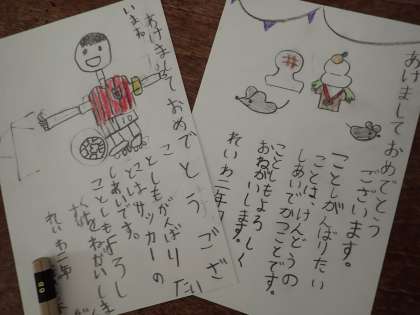 あけまして
おめでとう
ございます。
ことしがんばりたい
ことは、けんどうの
しあいでかつことです。
ことしもよろしく
おねがいします。
れいわ二年
あけましておめでとう
ござ
ことしもがんばりたい
ことはサッカーの
しあいです。
ことしもよろし
おねがいしま
れいわ二年